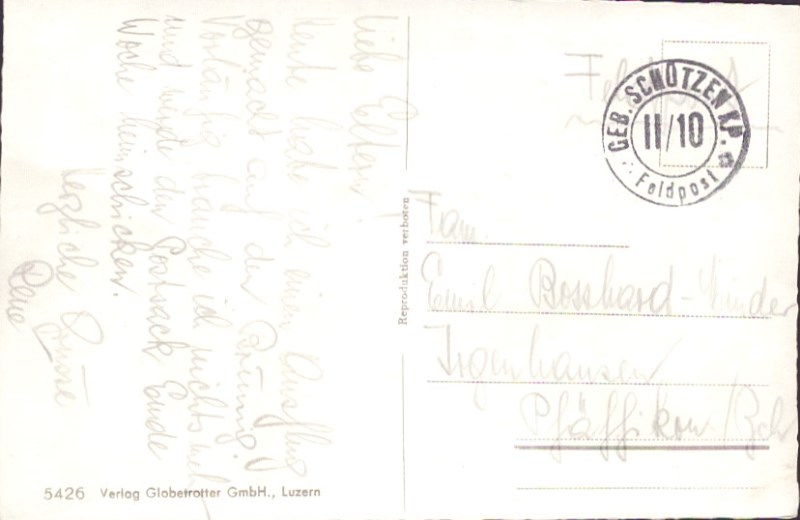 Liebe Eltern!
Heute habe ich einen Ausflug
gemacht auf den Brünig.
Vorläufig brauche ich nichts mehr
und werde den Postsack Ende
Woche heimschicken.
Herzliche Grüsse
René
Feldpost
GEB. SCHÜTZEN KP.
II/10
Feldpost
Reproduktion verboten
Fam.
Emil Bosshard-
Irgenhausen
Pfäffikon/Zch
5426 Verlag Globetrotter GmbH., Luzern